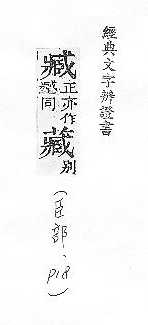 經典文字辨證書
臧正亦作藏別
臧惑同
(臣部、P18)